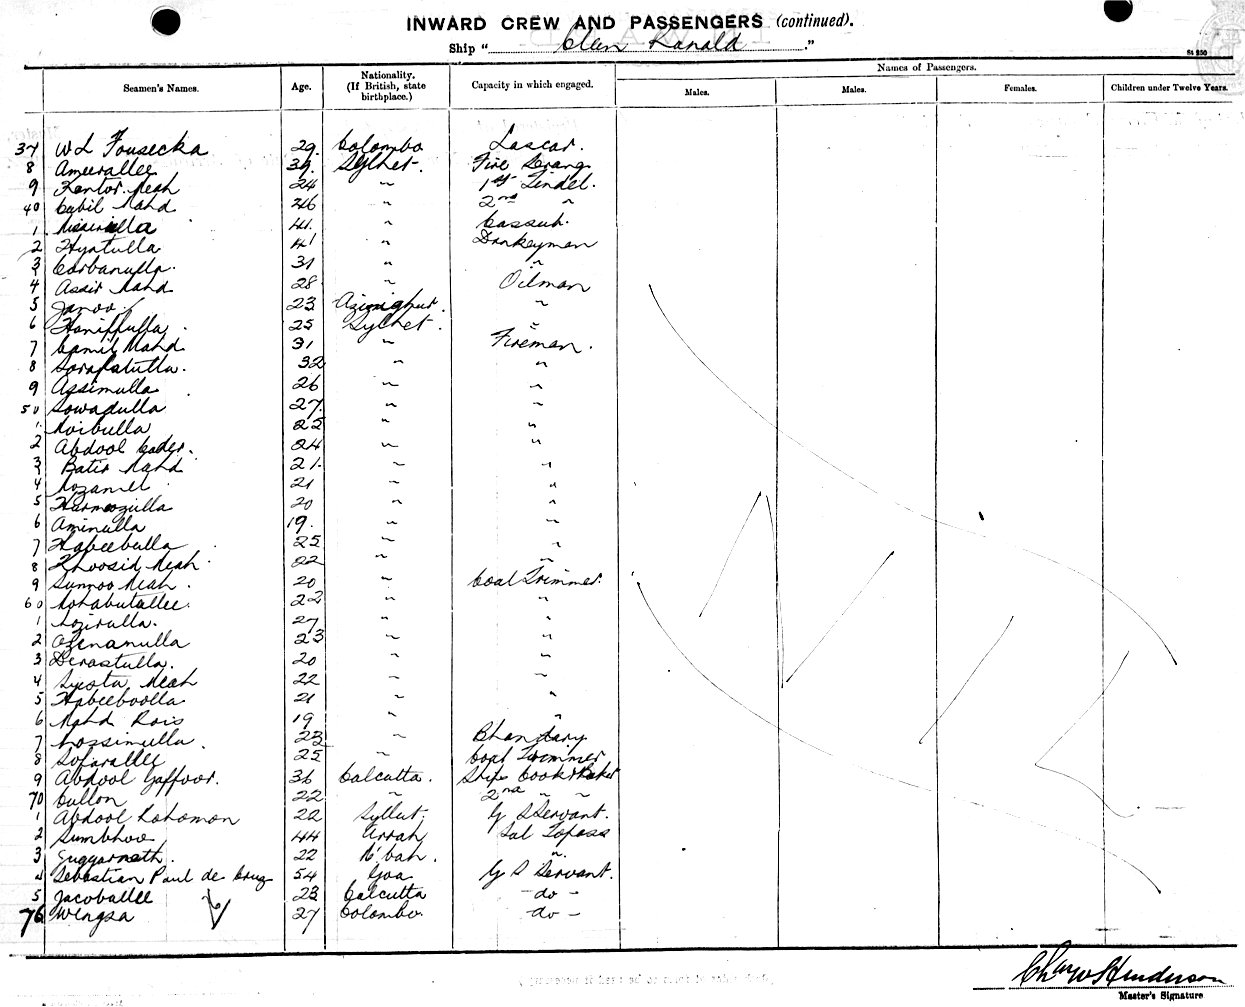 INWARD CREW AND PASSENGERS (continued).
Ship " Clan Ranald "
St 250
Seamen's Names. Age. Nationality. (If British, state birthplace.) Capacity in which engaged. Names of Passengers.
Males. Males. Females. Children under Twelve Years.
37 W L Fonsecka 29 Colombo Lascar.
8 Ameerallee 39. Sylhet. Fire Serang
9 Kentor Meah 24 " 1st Tindel.
40 Cabil Mahd 36 " 2nd "
1 41. " Cassub.
2 Hyatulla 41 " Donkeyman
3 Corbanulla. 31 " "
4 Asair Mahd 28 " Oilman
5 Janoo 23 Azimghur. "
6 Haniffulla 25 Sylhet. "
7 Camil Mahd 31 " Fireman.
8 Sorafatulla. 32 " "
9 Assimulla 26 " "
50 Sowadulla 27. " "
1 Moibulla 25 " "
2 Abdool Cader. 24 " "
3 Batir Mahd 21. " "
4 21 " "
5 Hurmozulla 20 " "
6 Aminulla 19. " "
7 Habeebulla 25 " "
8 Khoosid Meah 22 " "
9 Sunnoo Meah. 20 " Coal Trimmer.
60 Mohabutallee. 22 " "
1 27 " "
2 Ozenanulla 23 " "
3 Derastulla. 20 " "
4 Meah 22 " "
5 Habeeboolla 21 " "
6 Mahd Rois 19 " "
7 23 " Bhandary
8 Sofarallee 25 " Coal Trimmer
9 Abdool Gaffoor. 36 Calcutta. Ships Cook & Baker
70 Cullon 22 " 2nd " "
1 Abdool Rahaman 22 Syllut. G S Servant.
2 Sumbhoo 44 Arrah Sal Topass
3 22 A'bah. "
4 Sebastian Paul de Cruz 54 Goa G S Servant.
5 Jacoballee 23 Calcutta - do -
76 Wengsa 27 Colombo. - do -
Chas W Henderson
Master's Signature